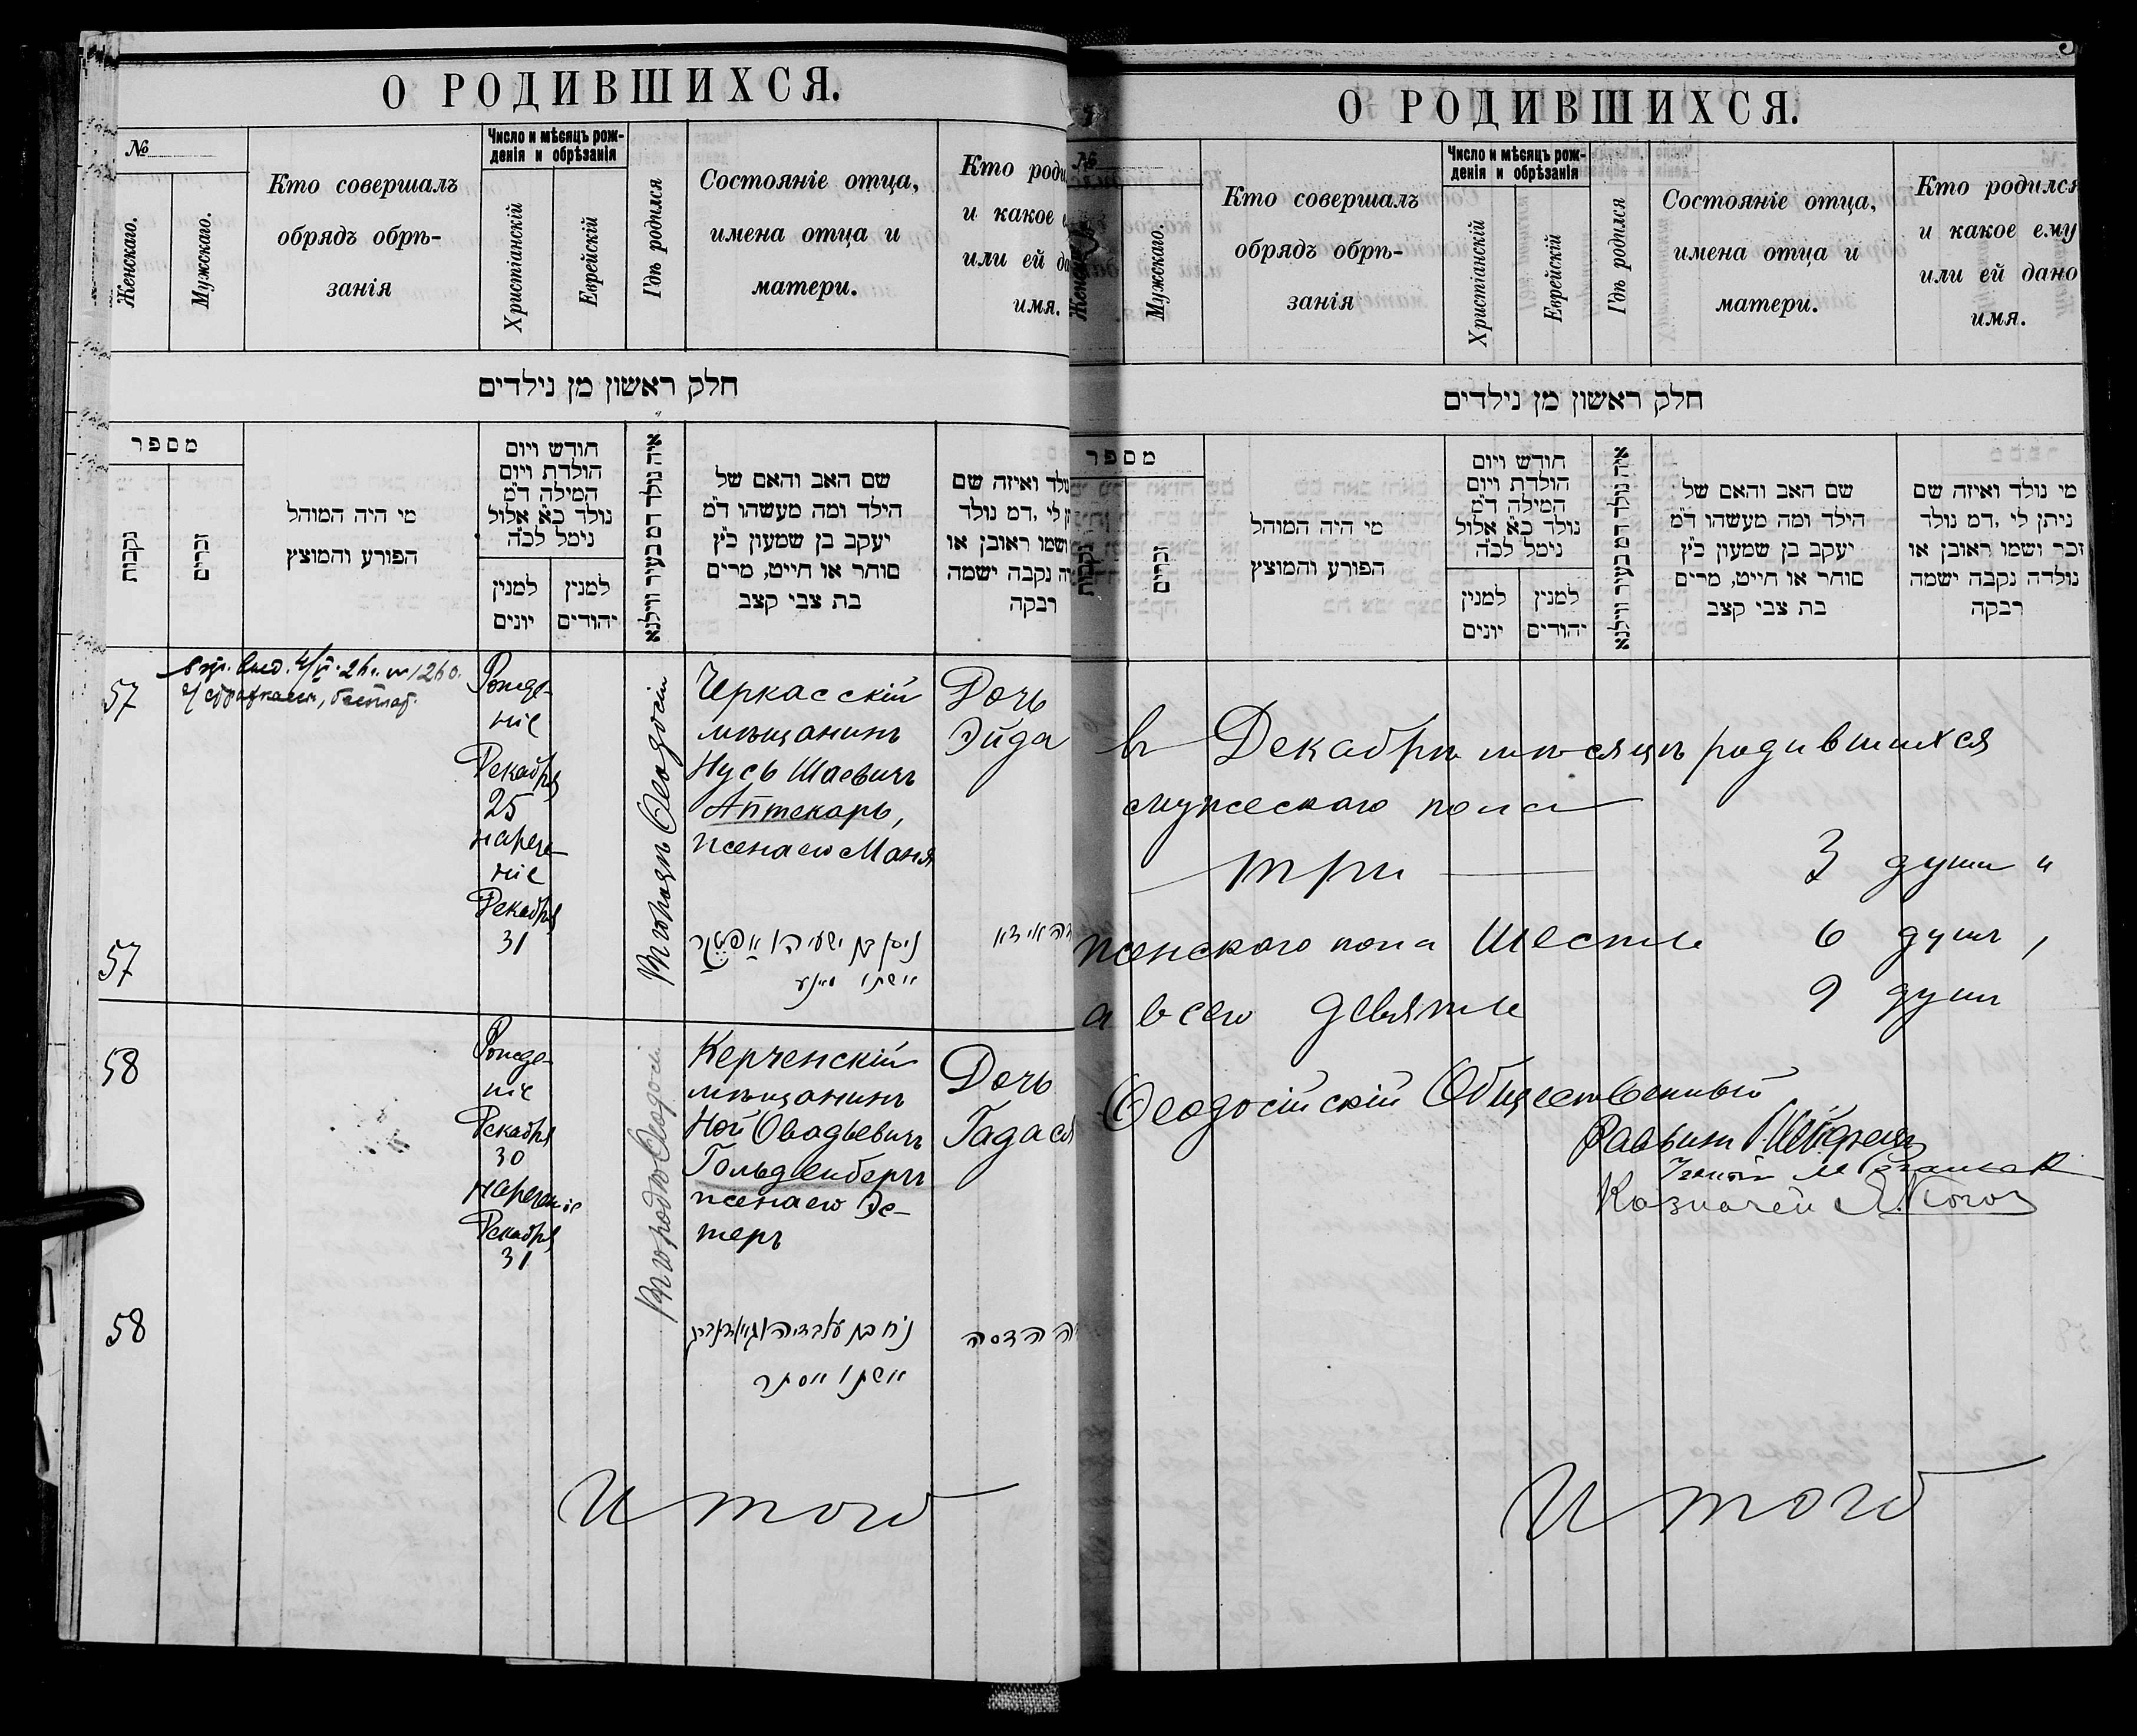 О РОДИВШИХСЯ.
№
Женскаго.
Мужскаго.
Кто совершалъ
обрядъ обрѣ-
занія
Число и мѣсяцъ рож-
денія и обрѣзанія
Христіанскій
Еврейскій
Гдѣ родился
Состояніе отца,
имена отца и
матери.
Кто
и какое
или ей
имя.
חלק ראשון מן נילדים
מספר
נקבות
זכרים
מי היה המוהל
הפורע והמוצץ
חודש ויום
הולדת ויום
המילה ד״מ
נולד כ״א אלול
נימל לכ״ה
למנין
יונים
למנין
יהודים
איה נולד דמ בעיר ווילנא
שם האב והאם של
הילד ומה מעשהו ד״מ
יעקב בן שמעון כ״ץ
סוחר או חייט, מרים
בת צבי קצב
ואיזה שם
לי ,דמ נולד
ושמו ראובן או
נקבה ישמה
רבקה
57
Рожде-
ніе
Декабря
25
нарече-
ніе
Декабря
31
въ городѣ Ѳеодосіи
Черкасскій
мѣщанинъ
Нусь Шаевичъ
Аптекарь,
жена его Маня
Дочь
Эйда
57
ניסן בן ישעיהו אפטקר
אשתו מאניע
אידא
58
Рожде-
ніе
Декабря
30
нареченіе
Декабря
31
въ городѣ Ѳеодосіи
Керченскій
мѣщанинъ
Ной Овадьевичъ
Гольденбергъ
жена его Эс-
теръ
Дочь
Гадася
58
נח בן עובדיהו גאלדענבערג
אשתו אסתר
הדסה
Итого
О РОДИВШИХСЯ.
№
Мужскаго.
Кто совершалъ
обрядъ обрѣ-
занія
Число и мѣсяцъ рож-
денія и обрѣзанія
Христіанскій
Еврейскій
Гдѣ родился
Состояніе отца,
имена отца и
матери.
Кто родился
и какое ему
или ей дано
имя.
חלק ראשון מן נילדים
מספר
נקבות
זכרים
מי היה המוהל
הפורע והמוצץ
חודש ויום
הולדת ויום
המילה ד״מ
נולד כ״א אלול
נימל לכ״ה
למנין
יונים
למנין
יהודים
איה נולד דמ בעיר ווילנא
שם האב והאם של
הילד ומה מעשהו ד״מ
יעקב בן שמעון כ״ץ
סוחר או חייט, מרים
בת צבי קצב
מי נולד ואיזה שם
ניתן לי ,דמ נולד
זכר ושמו ראובן או
נולדה נקבה ישמה
רבקה
въ Декабрѣ мѣсяцѣ родившихся
мужескаго пола
три 3 души "
женскаго пола шесть 6 душъ ,
а всего девять 9 душъ
Ѳеодосійскій Общественный
Раввинъ
Казначей
Итого